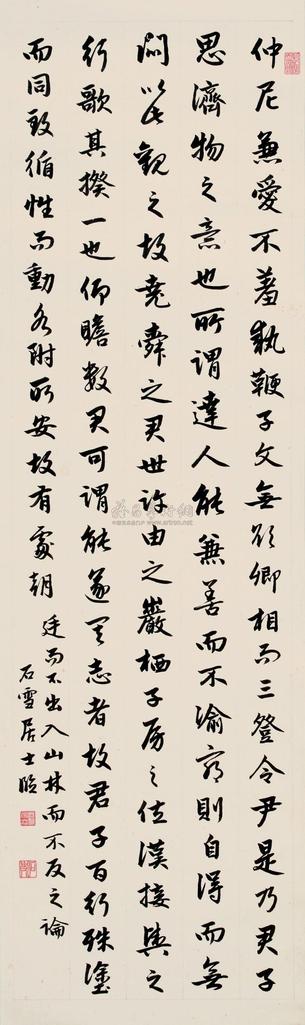 仲尼兼愛不羞執鞭子文無欲卿相而三登令尹是乃君子
思濟物之意也所謂達人能兼善而不渝窮則自得而無
悶以此觀之故堯舜之君世許由之巖栖子房之佐漢接輿之
行歌其揆一也仰瞻數君可謂能遂其志者故君子百行殊塗
而同致循性而動各附所安故有處朝
廷而不出入山林而不反之論
石雪居士臨